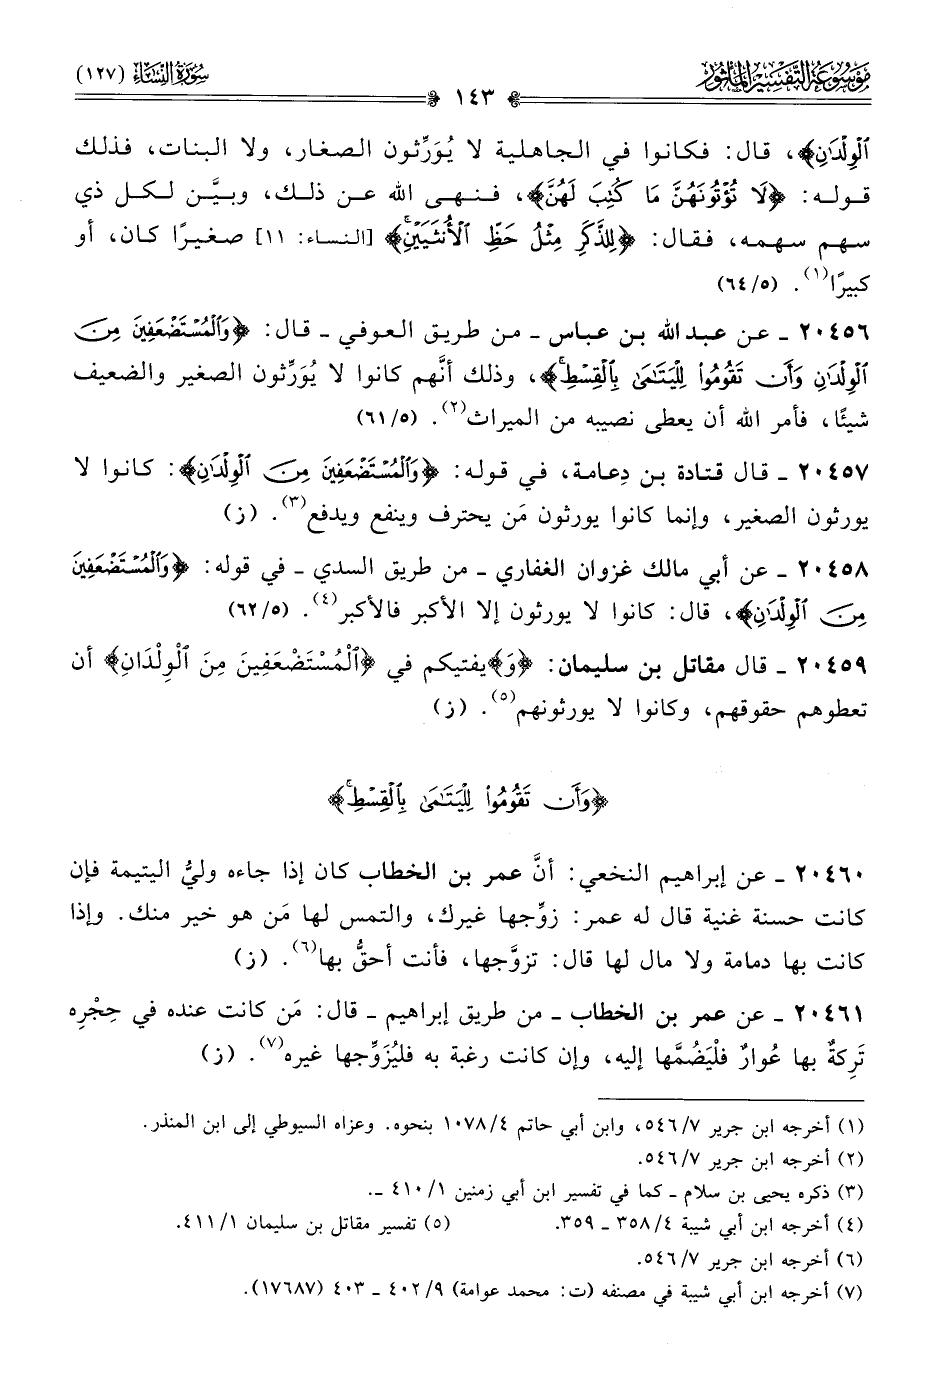 مَوْسُوعَةُ التَّفْسِيرِ المَأْثُورِ
سُورَةُ النِّسَاءِ (١٢٧)
١٤٣
ٱلْوِلْدَٰنِ﴾، قال: فكانوا في الجاهلية لا يُوَرِّثون الصغار، ولا البنات، فذلك
قوله: ﴿لَا تُؤْتُونَهُنَّ مَا كُتِبَ لَهُنَّ﴾، فنهى الله عن ذلك، وبيَّن لكل ذي
سهم سهمه، فقال: ﴿لِلذَّكَرِ مِثْلُ حَظِّ ٱلْأُنثَيَيْنِ﴾ [النساء: ١١] صغيرًا كان، أو
كبيرًا(١). (٦٤/٥)
٢٠٤٥٦ ـ عن عبد الله بن عباس ـ من طريق العوفي ـ قال: ﴿وَٱلْمُسْتَضْعَفِينَ مِنَ
ٱلْوِلْدَٰنِ وَأَن تَقُومُوا۟ لِلْيَتَٰمَىٰ بِٱلْقِسْطِ﴾، وذلك أنَّهم كانوا لا يُوَرِّثون الصغير والضعيف
شيئًا، فأمر الله أن يعطى نصيبه من الميراث(٢). (٦١/٥)
٢٠٤٥٧ ـ قال قتادة بن دِعامة، في قوله: ﴿وَٱلْمُسْتَضْعَفِينَ مِنَ ٱلْوِلْدَٰنِ﴾: كانوا لا
يورثون الصغير، وإنما كانوا يورثون مَن يحترف وينفع ويدفع(٣). (ز)
٢٠٤٥٨ ـ عن أبي مالك غزوان الغفاري ـ من طريق السدي ـ في قوله: ﴿وَٱلْمُسْتَضْعَفِينَ
مِنَ ٱلْوِلْدَٰنِ﴾، قال: كانوا لا يورثون إلا الأكبر فالأكبر(٤). (٦٢/٥)
٢٠٤٥٩ ـ قال مقاتل بن سليمان: ﴿وَ﴾يفتيكم في ﴿ٱلْمُسْتَضْعَفِينَ مِنَ ٱلْوِلْدَانِ﴾ أن
تعطوهم حقوقهم، وكانوا لا يورثونهم(٥). (ز)
﴿وَأَن تَقُومُوا۟ لِلْيَتَٰمَىٰ بِٱلْقِسْطِ﴾
٢٠٤٦٠ ـ عن إبراهيم النخعي: أنَّ عمر بن الخطاب كان إذا جاءه وليُّ اليتيمة فإن
كانت حسنة غنية قال له عمر: زوِّجها غيرك، والتمس لها مَن هو خير منك. وإذا
كانت بها دمامة ولا مال لها قال: تزوَّجها، فأنت أحقُّ بها(٦). (ز)
٢٠٤٦١ ـ عن عمر بن الخطاب ـ من طريق إبراهيم ـ قال: مَن كانت عنده في حِجْرِه
تَرِكةٌ بها عُوارٌ فلْيَضُمَّها إليه، وإن كانت رغبة به فليُزَوِّجها غيره(٧). (ز)
(١) أخرجه ابن جرير ٥٤٦/٧، وابن أبي حاتم ١٠٧٨/٤ بنحوه. وعزاه السيوطي إلى ابن المنذر.
(٢) أخرجه ابن جرير ٥٤٦/٧.
(٣) ذكره يحيى بن سلام ـ كما في تفسير ابن أبي زمنين ٤١٠/١ ـ.
(٤) أخرجه ابن أبي شيبة ٣٥٨/٤ ـ ٣٥٩. (٥) تفسير مقاتل بن سليمان ٤١١/١.
(٦) أخرجه ابن جرير ٥٤٦/٧.
(٧) أخرجه ابن أبي شيبة في مصنفه (ت: محمد عوامة) ٤٠٢/٩ ـ ٤٠٣ (١٧٦٨٧).